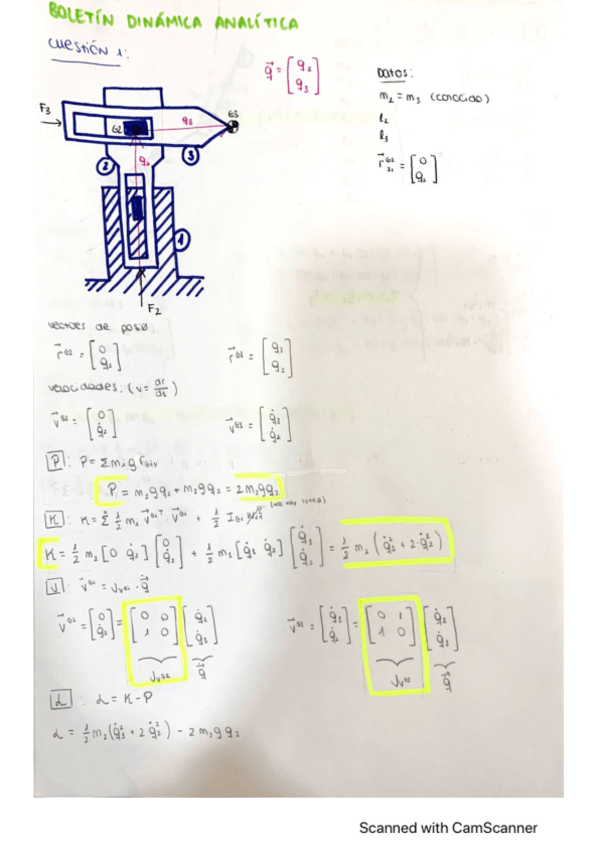 BOLETÍN DINÁMICA ANALÍTICA
CUESTIÓN 1:
q⃗ = [q₂ q₃]
DATOS:
m₂ = m₃ (conocido)
l₂
l₃
r⃗ᴳ²₂₁ = [0 q₂]
F3
G2
q₃
G3
q₂
2
3
1
F2
vectores de posº
r⃗ᴳ² = [0 q₂]
r⃗ᴳ³ = [q₃ q₂]
velocidades: (v = dr/dt)
v⃗ᴳ² = [0 q̇₂]
v⃗ᴳ³ = [q̇₃ q̇₂]
P: P = Σ mᵢ g rᴳⁱᵥ
P = m₂gq₂ + m₂gq₂ = 2m₂gq₂
K: K = Σ ½ mᵢ v⃗ᴳⁱᵀ · v⃗ᴳⁱ + ½ Iᴳⁱ
K = ½ m₂ [0 q̇₂] [0 q̇₂] + ½ m₃ [q̇₃ q̇₂] [q̇₃ q̇₂] = ½ m₂ (q̇₃² + 2·q̇₂²)
J: v⃗ᴳⁱ = Jᵥᴳⁱ · q̇⃗
v⃗ᴳ² = [0 q̇₂] = [0 0 1 0] [q̇₂ q̇₃]
v⃗ᴳ³ = [q̇₃ q̇₂] = [0 1 1 0] [q̇₂ q̇₃]
Jᵥᴳ² q̇⃗
Jᵥᴳ³ q̇⃗
L: L = K - P
L = ½ m₂ (q̇₃² + 2 q̇₂²) - 2 m₂ g q₂
Scanned with CamScanner